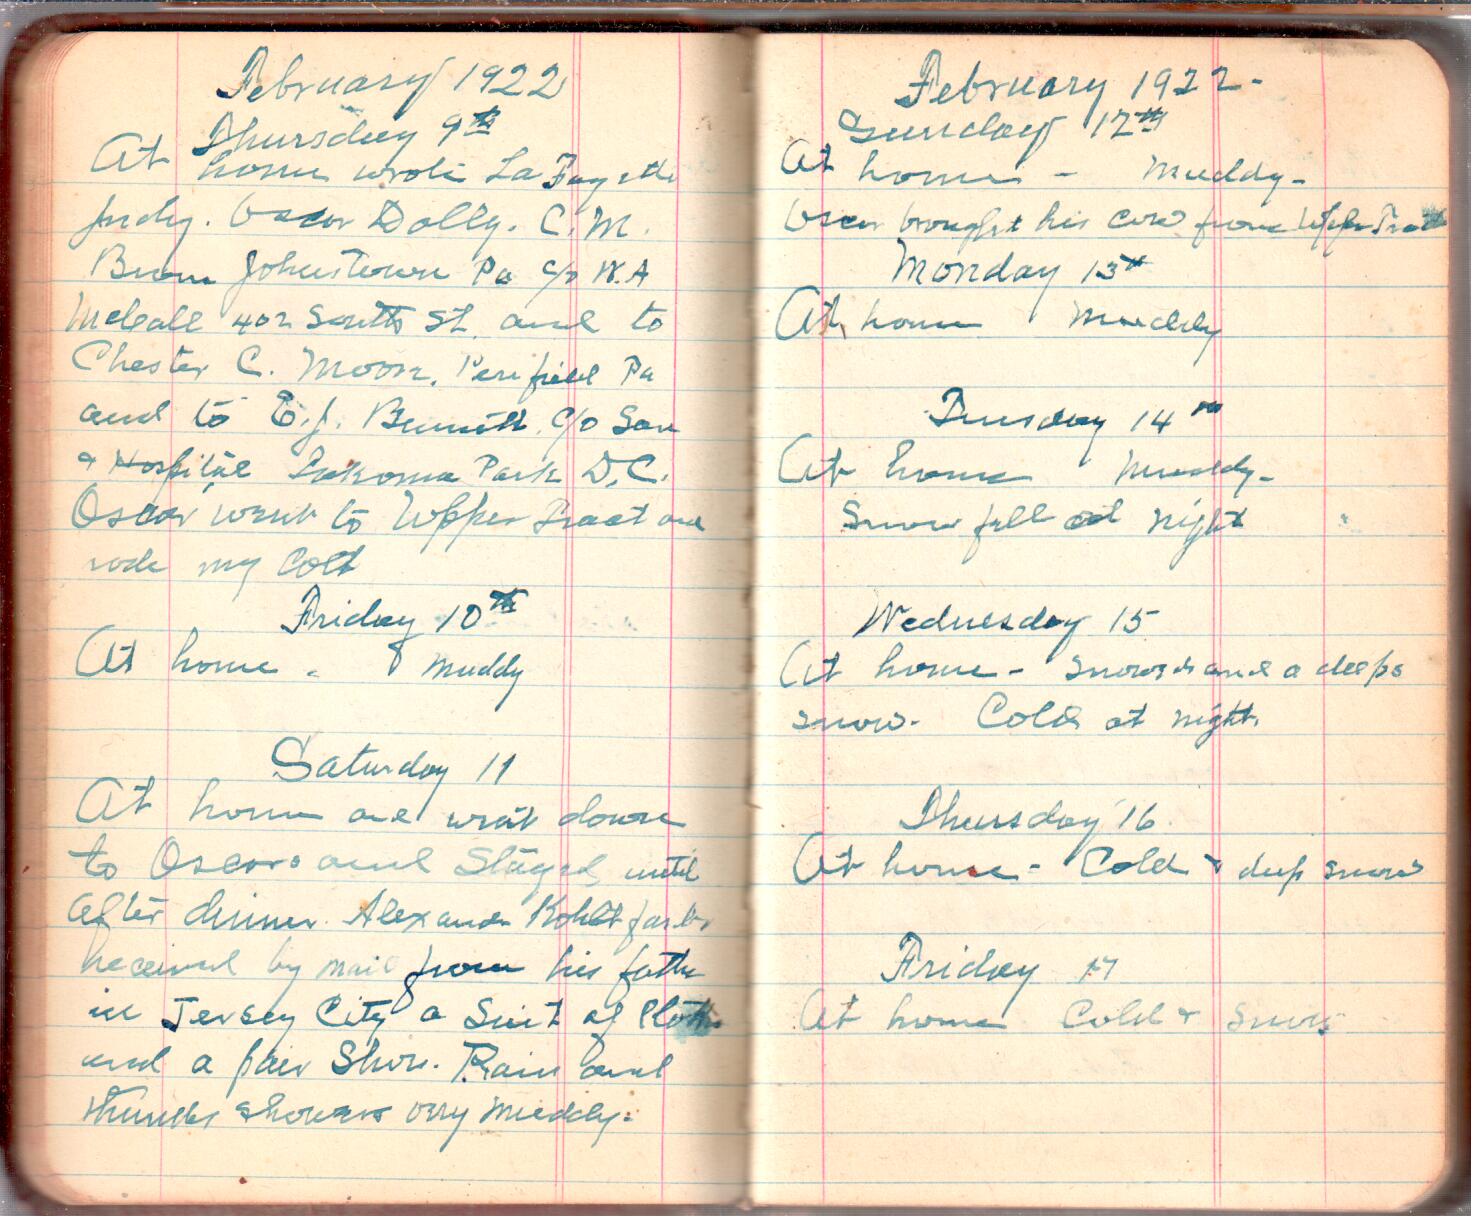 February 1922
Thursday 9th
At home wrote La Fayette
Indy. Oscar Dolly. C. M.
Johnstown Pa c/o W. A
McCall 402 South St. and to
Chester C. Moore, Pa
and to E. J. Bennett c/o San
& Hospital Takoma Park D. C.
Oscar went to Upper Tract and
rode my Colt
Friday 10th
At home - muddy
Saturday 11
At home and went down
to Oscars and Stayed until
after dinner. Alexander
received by mail from his father
in Jersey City a Suit of Cloths
and a pair Shoes. Rain and
thunder showers very muddy.
February 1922-
Sunday 12th
At home - Muddy-
Oscar brought his cow from Upper Tract
Monday 13th
At home Muddy
Tuesday 14th
At home Muddy-
Snow fell at night
Wednesday 15
At home - snowed and a deep
snow. Cold at night.
Thursday 16
At home - Cold & deep snow
Friday 17
At home Cold & Snow